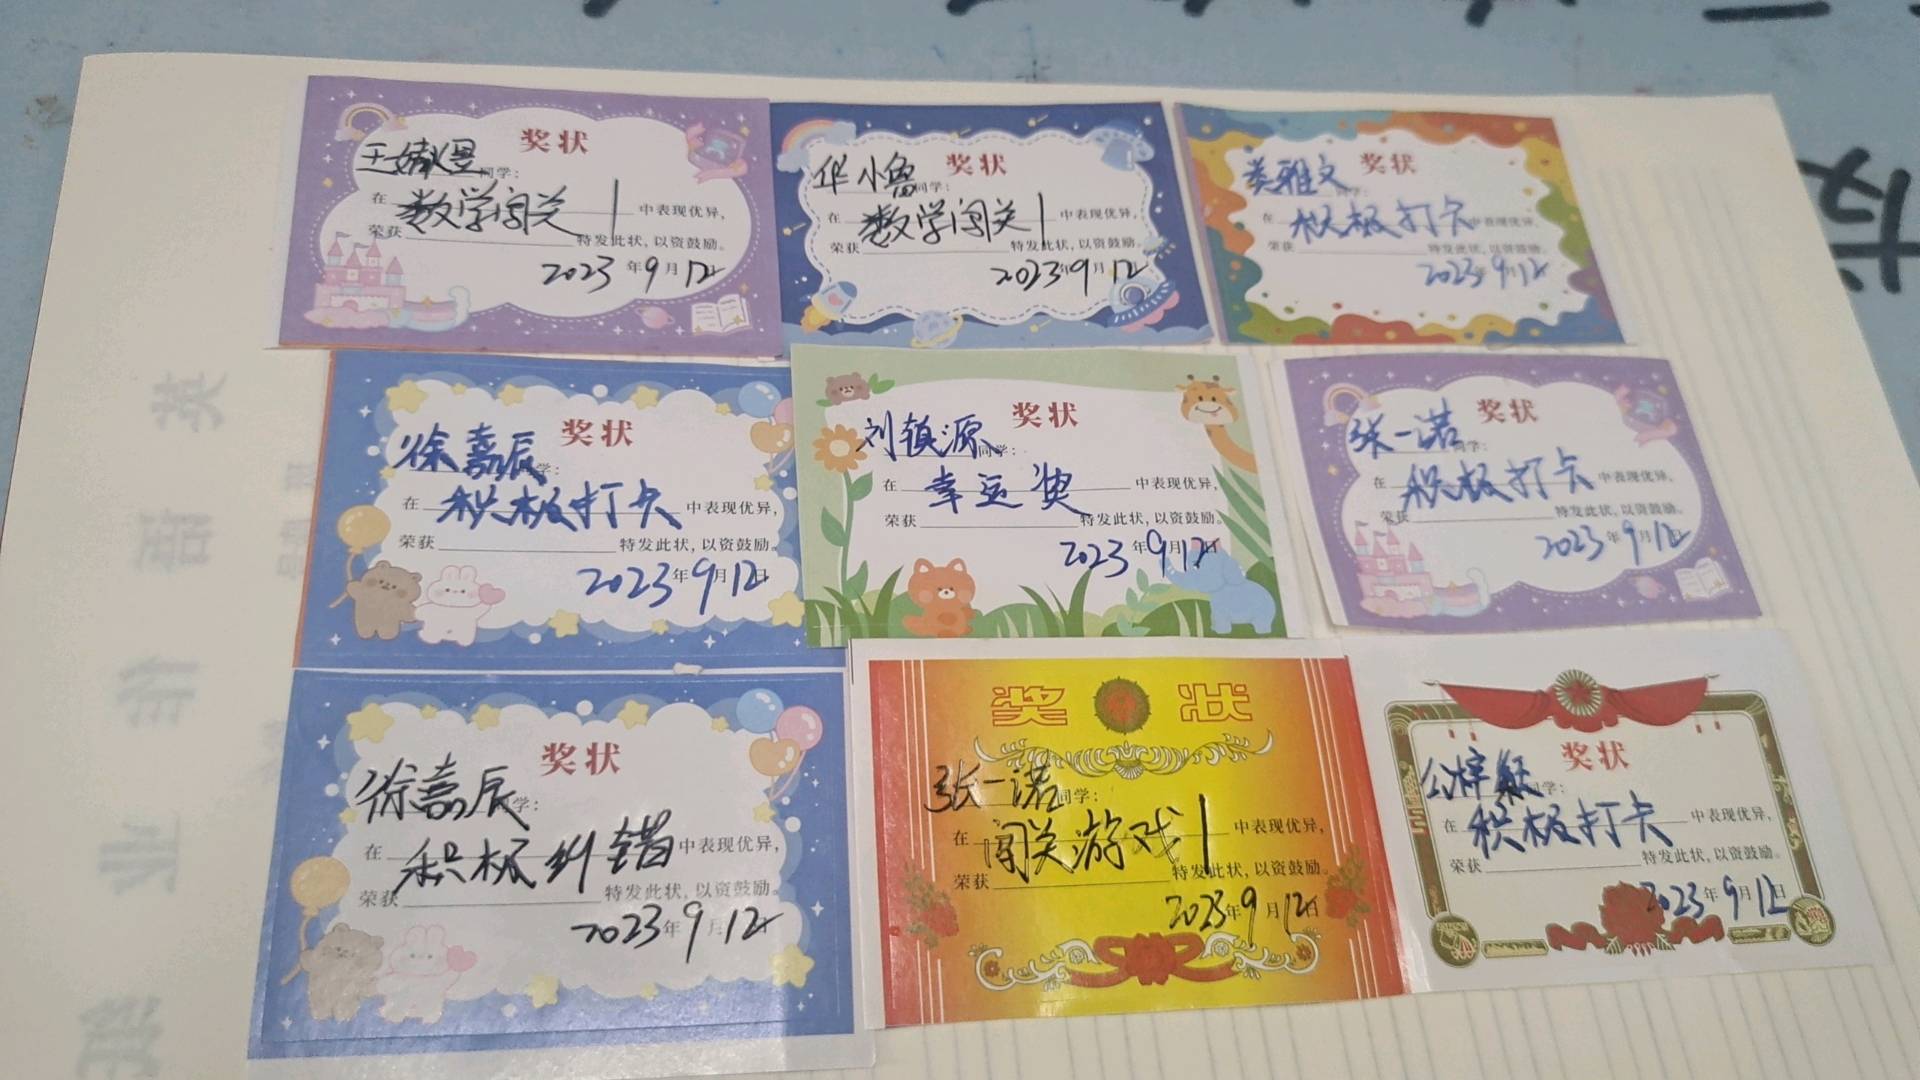 奖状
王婧恩同学:
在数学闯关1中表现优异,
荣获 特发此状,以资鼓励。
2023年9月12
奖状
华小鲁同学:
在数学闯关1中表现优异,
荣获 特发此状,以资鼓励。
2023年9月12
奖状
类雅文同学:
在积极打卡中表现优异,
荣获 特发此状,以资鼓励。
2023年9月12
奖状
徐嘉辰同学:
在积极打卡中表现优异,
荣获 特发此状,以资鼓励。
2023年9月12日
奖状
刘镇源同学:
在幸运奖中表现优异,
荣获 特发此状,以资鼓励。
2023年9月12日
奖状
张一诺同学:
在积极打卡中表现优异,
荣获 特发此状,以资鼓励。
2023年9月12
奖状
徐嘉辰同学:
在积极纠错中表现优异,
荣获 特发此状,以资鼓励。
2023年9月12日
奖状
张一诺同学:
在闯关游戏1中表现优异,
荣获 特发此状,以资鼓励。
2023年9月12日
奖状
同学:
在积极打卡中表现优异,
荣获 特发此状,以资鼓励。
2023年9月12日